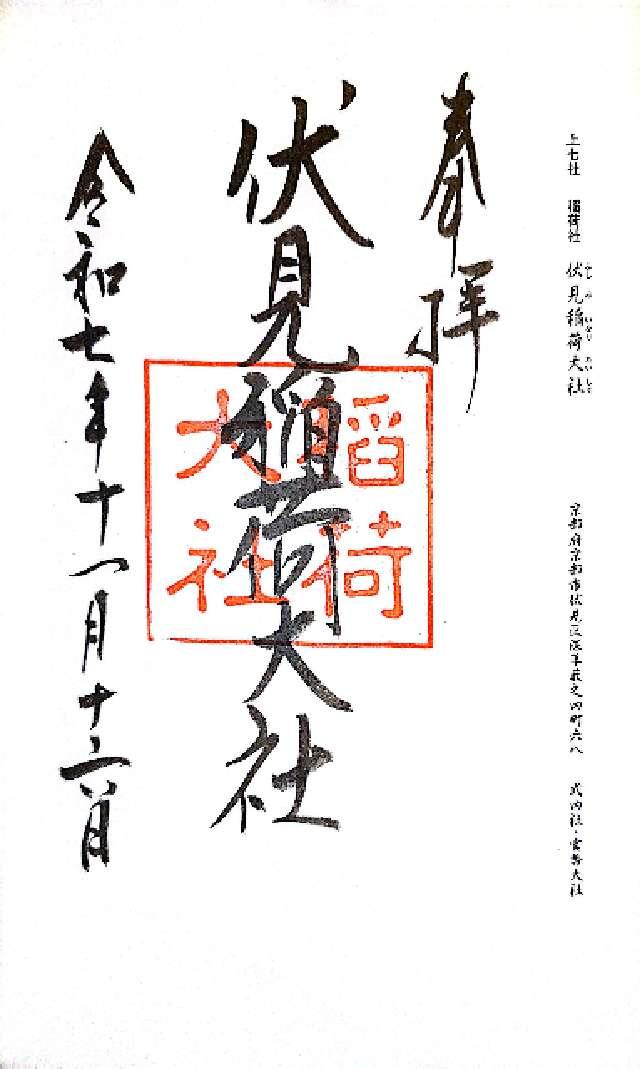 上七社 稲荷社 伏見稲荷大社
京都府京都市伏見区深草薮之内町六八 式内社・官幣大社
奉拝
伏見稲荷大社
稲荷
大社
令和七年十一月十六日